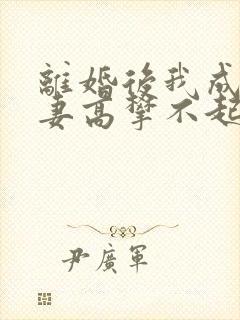 離婚後我成
妻高攀不起
尹廣軍